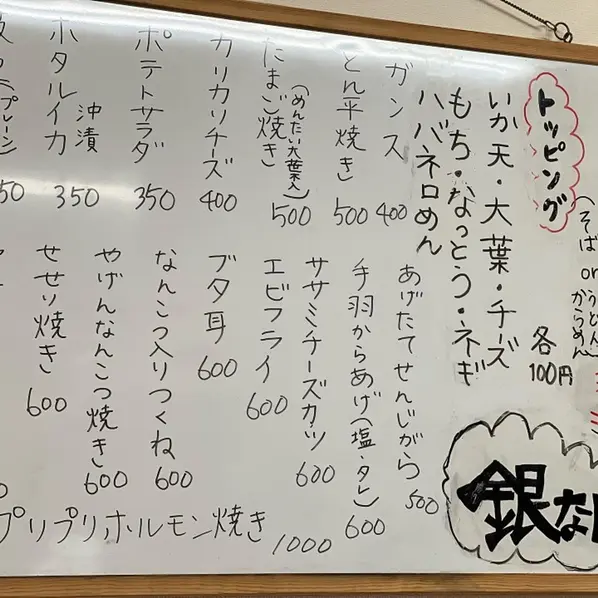 (そば or うどん)
からめん
トッピング
いか天・大葉・チーズ
もち・なっとう・ネギ
ハバネロめん
各100円
ガンス 400
とん平焼き 500
たまご焼き (めんたい大葉入) 500
カリカリチーズ 400
ポテトサラダ 350
ホタルイカ沖漬 350
(プレーン)
あげたてせんじがら 500
手羽からあげ(塩・タレ) 600
ササミチーズカツ 600
エビフライ 600
ブタ耳 600
なんこつ入りつくね 600
やげんなんこつ焼き 600
せせり焼き 600
プリプリホルモン焼き 1000
銀な